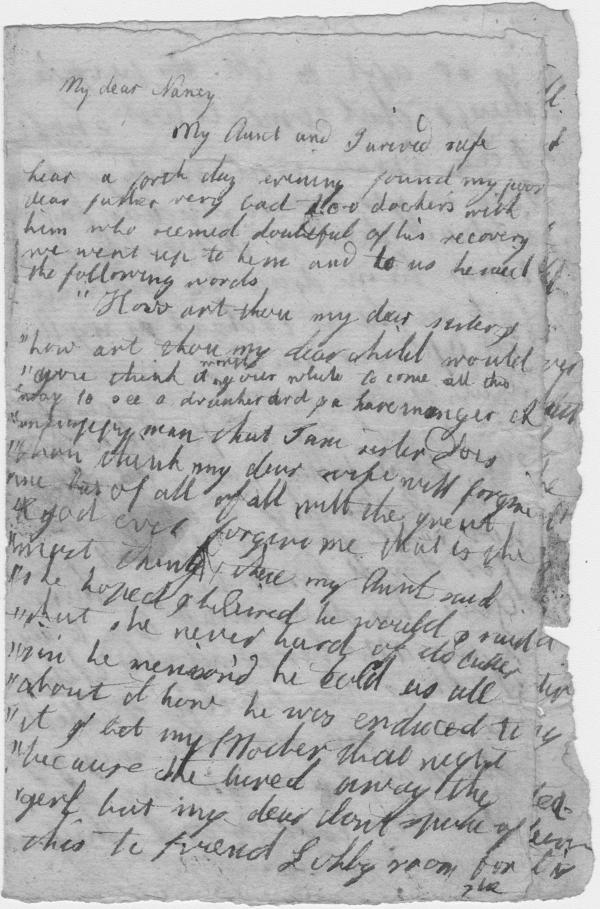 My dear Nancy
My Aunt and I arived safe
hear a forth day evening found my poor
dear father very bad two docters with
him who seemed doubtful of his recovery
we went up to him and to us he said
the following words
" How art thou my dear sister &
" how art thou my dear child would
" you think it worth your while to come all this
way to see a drunkerdard & a haremonger &
" unhappy man that I am sister does
" thou think my dear wife will forgive
me but of all of all will the great
god ever forgive me that is the
" great thing there my Aunt said
" she hoped & belived he would & said
" that she never hard of
" sin he mension'd he told us all
" about it how he was enduced to
" it & bet my Mother that night
" because she hired away the
" gerl but my dear dont speak of
this to friend Libby room for